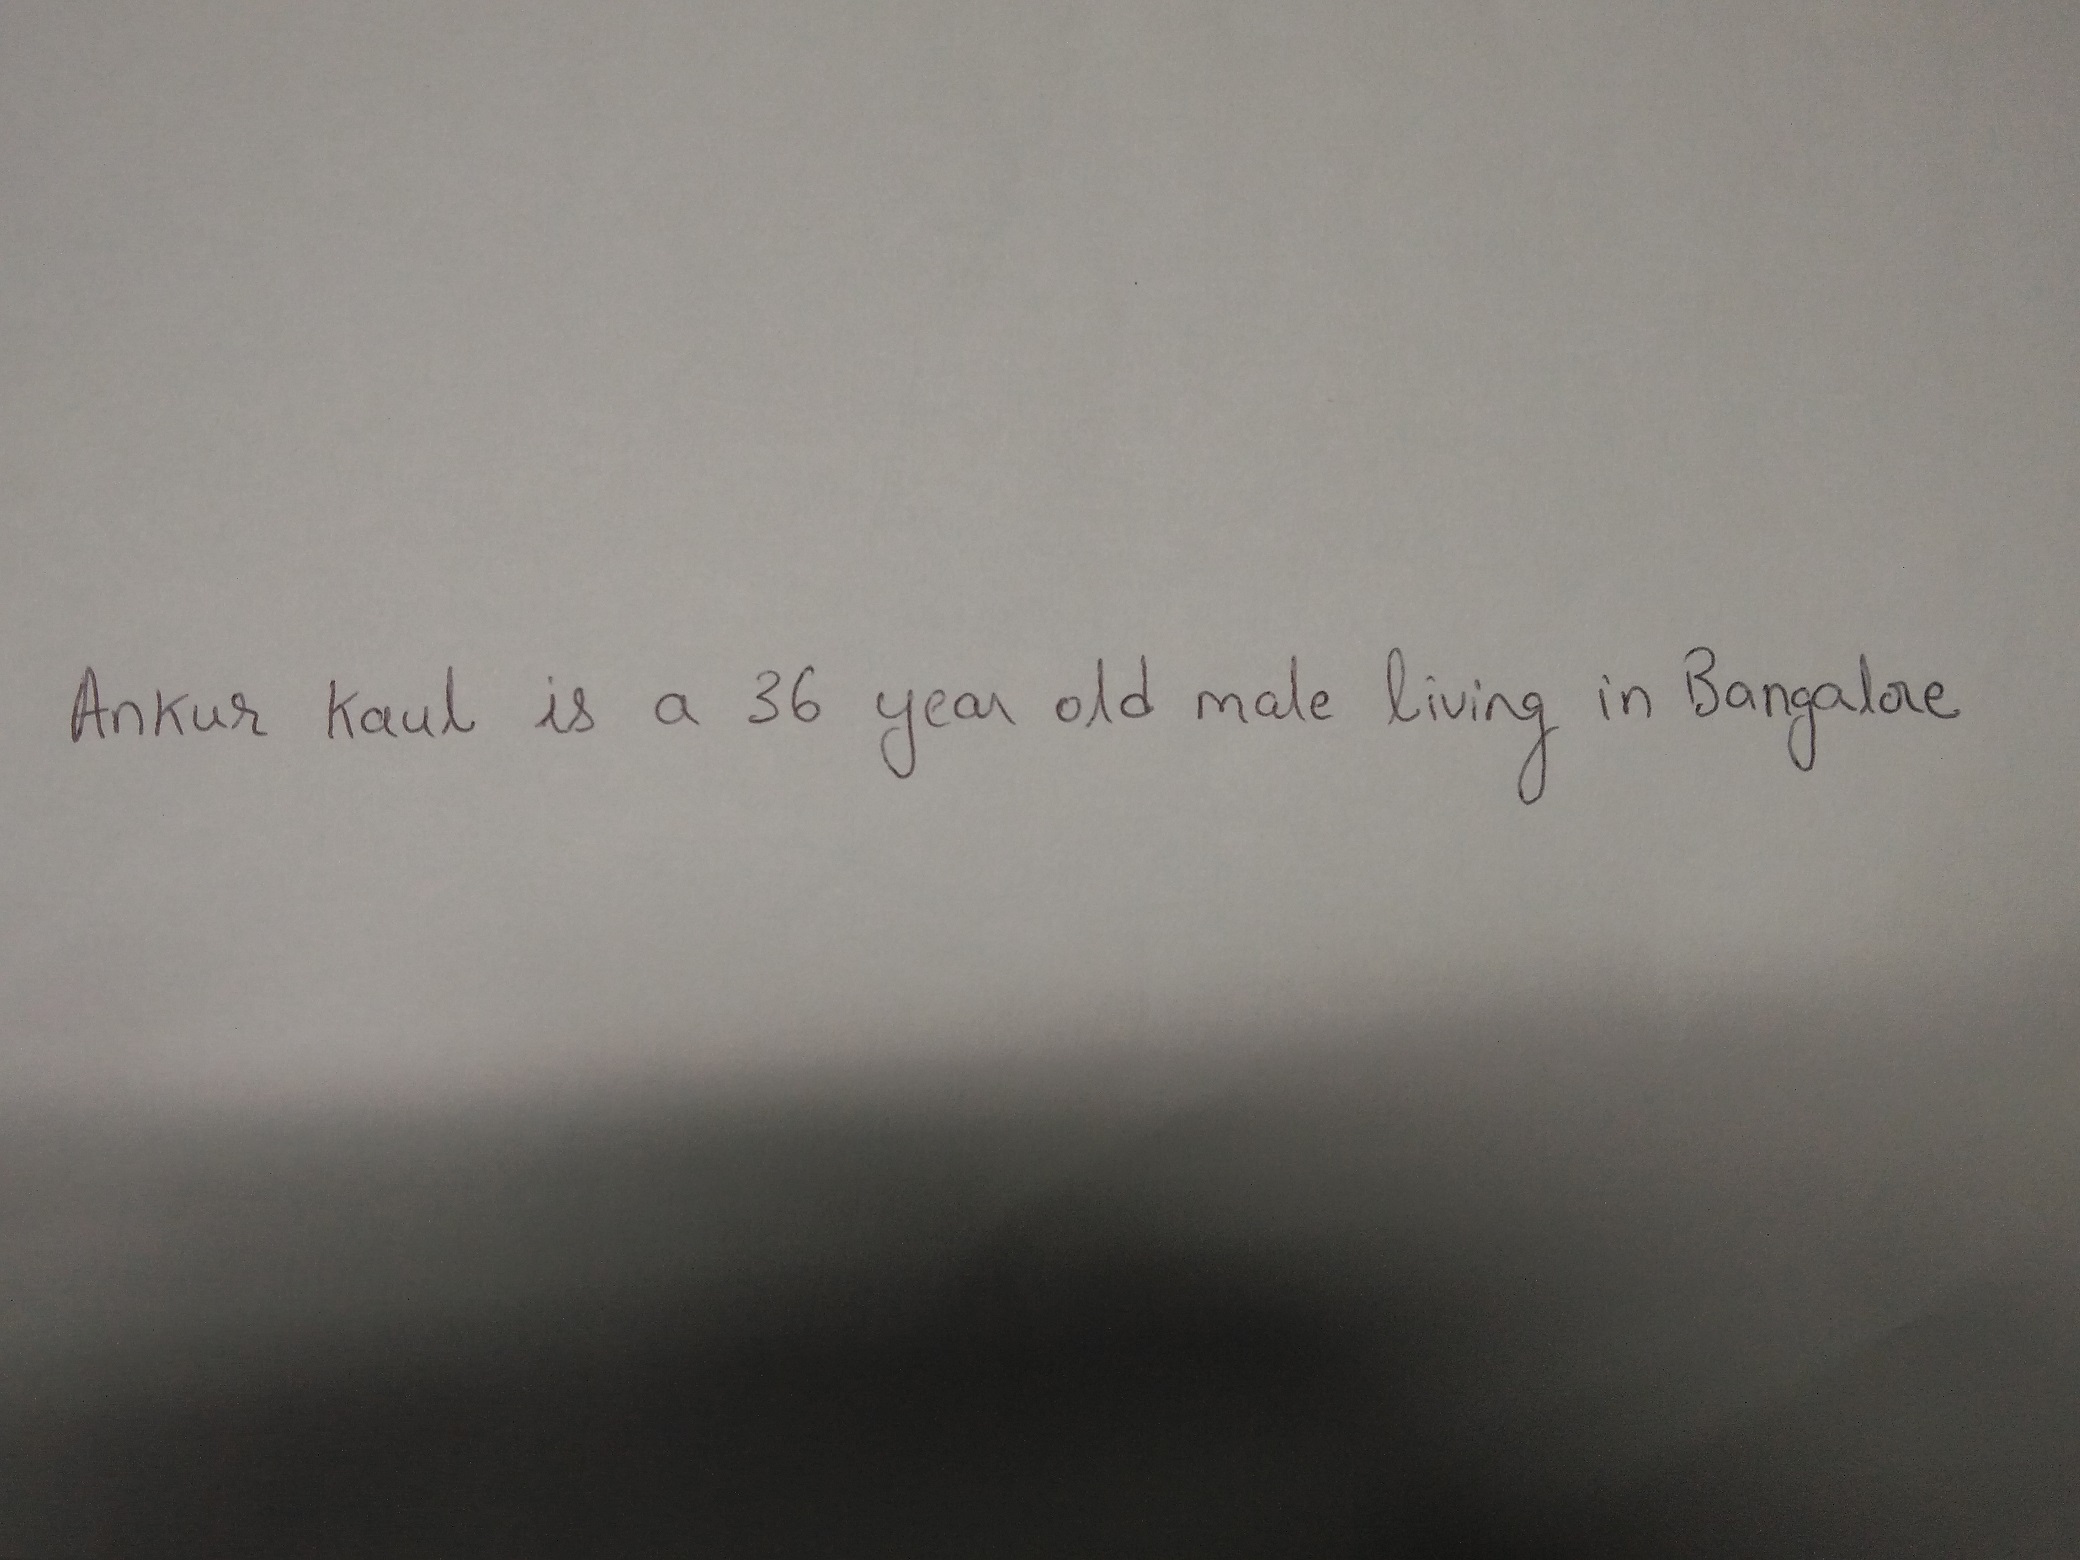 Ankur Kaul is a 36 year old male living in Bangalore